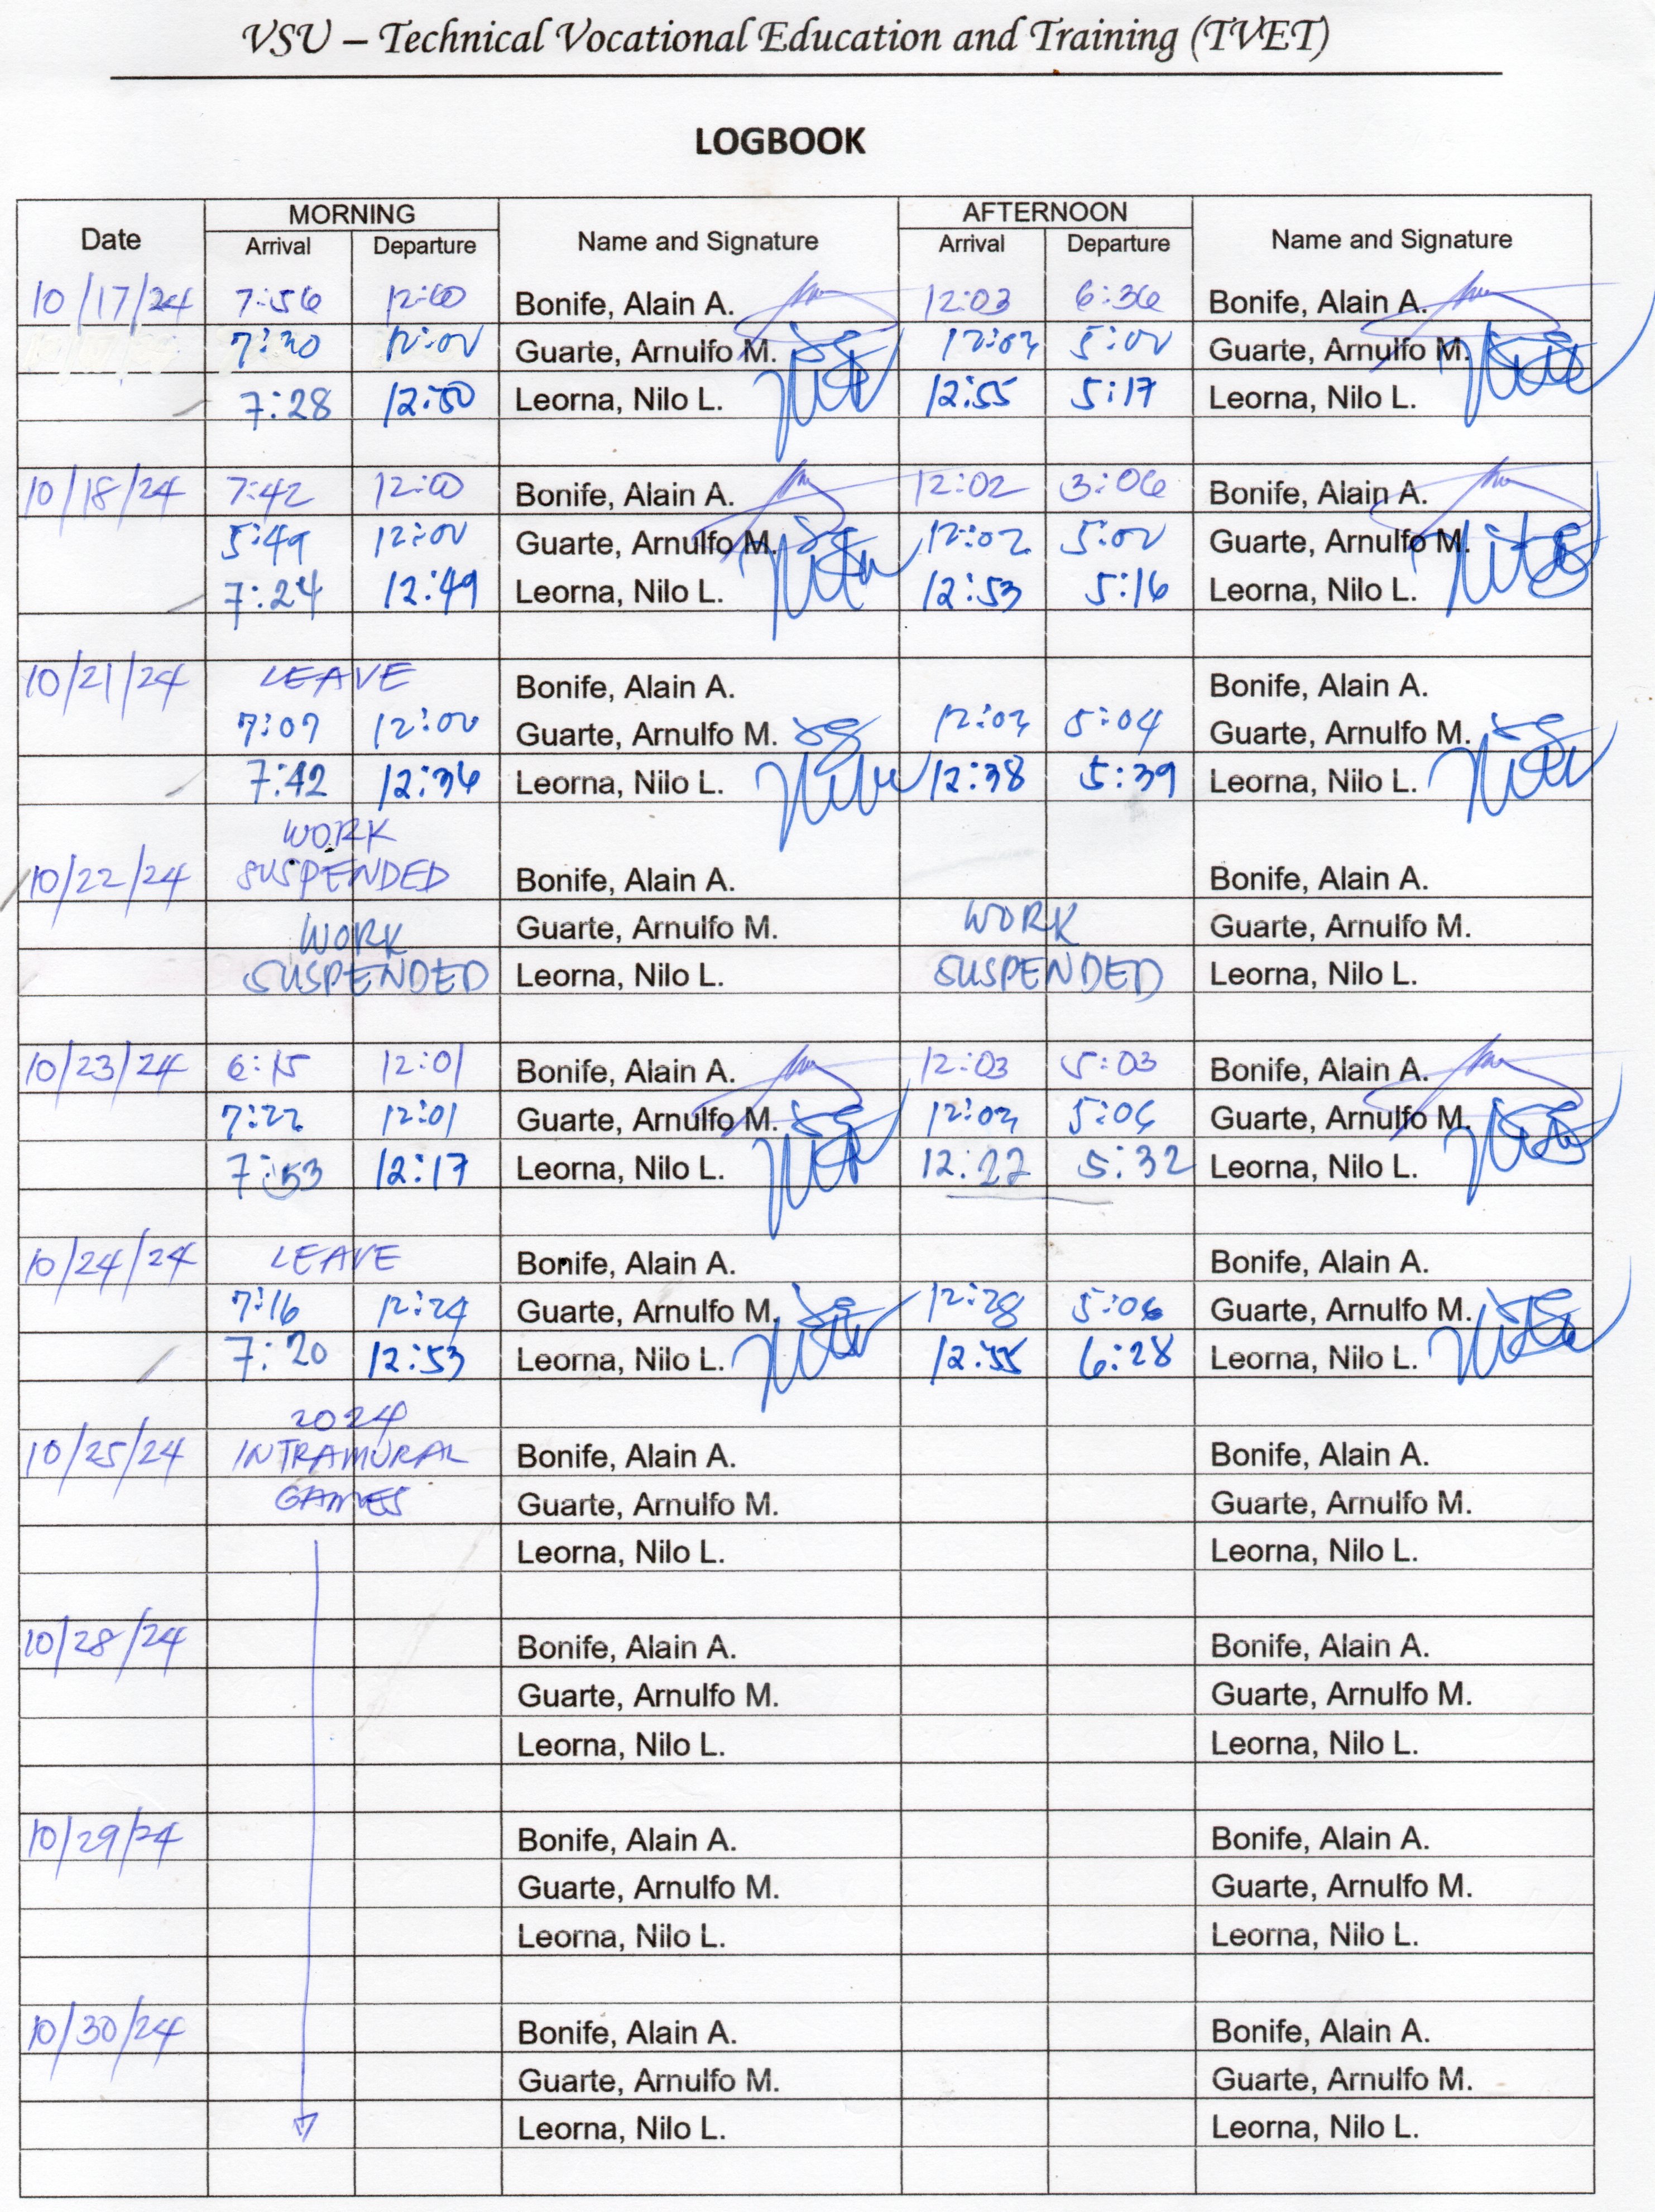 VSU – Technical Vocational Education and Training (TVET)
LOGBOOK
Date MORNING Name and Signature AFTERNOON Name and Signature
Arrival Departure Arrival Departure
10/17/24 7:56 12:00 Bonife, Alain A. 12:03 6:36 Bonife, Alain A.
7:30 12:00 Guarte, Arnulfo M. 12:02 5:00 Guarte, Arnulfo M.
7:28 12:50 Leorna, Nilo L. 12:55 5:17 Leorna, Nilo L.
10/18/24 7:42 12:00 Bonife, Alain A. 12:02 3:06 Bonife, Alain A.
5:49 12:00 Guarte, Arnulfo M. 12:02 5:00 Guarte, Arnulfo M.
7:24 12:49 Leorna, Nilo L. 12:53 5:16 Leorna, Nilo L.
10/21/24 LEAVE Bonife, Alain A. Bonife, Alain A.
7:07 12:00 Guarte, Arnulfo M. 12:02 5:04 Guarte, Arnulfo M.
7:42 12:36 Leorna, Nilo L. 12:38 5:39 Leorna, Nilo L.
WORK
10/22/24 SUSPENDED Bonife, Alain A. Bonife, Alain A.
WORK Guarte, Arnulfo M. WORK Guarte, Arnulfo M.
SUSPENDED Leorna, Nilo L. SUSPENDED Leorna, Nilo L.
10/23/24 6:15 12:01 Bonife, Alain A. 12:03 5:03 Bonife, Alain A.
7:22 12:01 Guarte, Arnulfo M. 12:02 5:06 Guarte, Arnulfo M.
7:53 12:17 Leorna, Nilo L. 12:27 5:32 Leorna, Nilo L.
10/24/24 LEAVE Bonife, Alain A. Bonife, Alain A.
7:16 12:24 Guarte, Arnulfo M. 12:28 5:06 Guarte, Arnulfo M.
7:20 12:53 Leorna, Nilo L. 12:55 6:28 Leorna, Nilo L.
2024
10/25/24 INTRAMURAL Bonife, Alain A. Bonife, Alain A.
GAMES Guarte, Arnulfo M. Guarte, Arnulfo M.
Leorna, Nilo L. Leorna, Nilo L.
10/28/24 Bonife, Alain A. Bonife, Alain A.
Guarte, Arnulfo M. Guarte, Arnulfo M.
Leorna, Nilo L. Leorna, Nilo L.
10/29/24 Bonife, Alain A. Bonife, Alain A.
Guarte, Arnulfo M. Guarte, Arnulfo M.
Leorna, Nilo L. Leorna, Nilo L.
10/30/24 Bonife, Alain A. Bonife, Alain A.
Guarte, Arnulfo M. Guarte, Arnulfo M.
Leorna, Nilo L. Leorna, Nilo L.